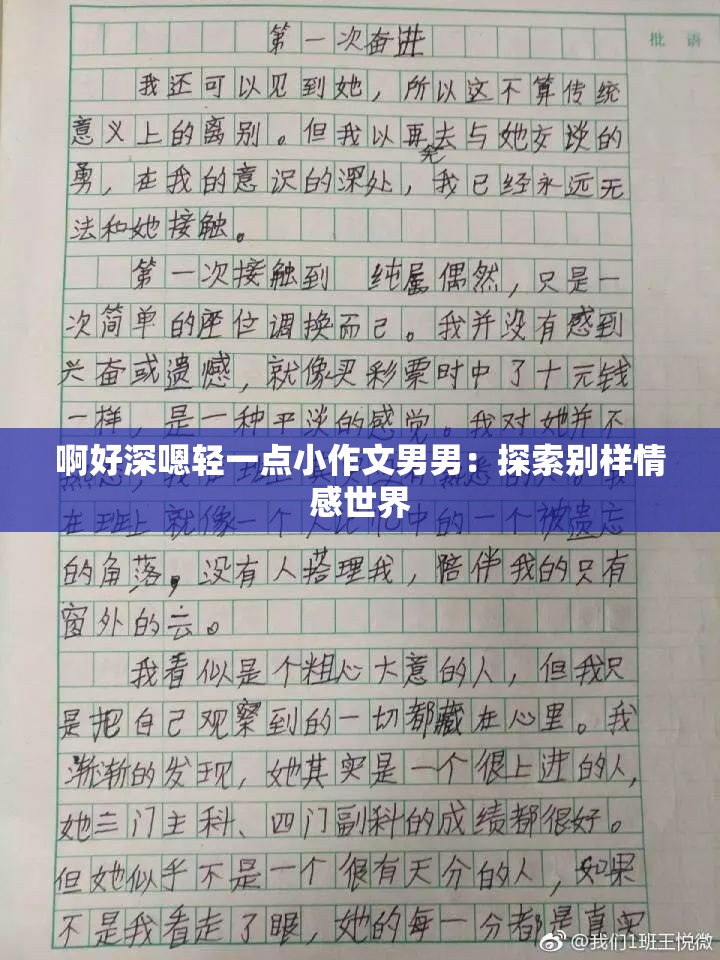 第一次奋进
批 语
我还可以见到她，所以这不算传统
意义上的离别。但我以再去与她交谈的
勇，在我的意识的深处，我已经永远无
法和她接触。
第一次接触到 纯属偶然，只是一
次简单的座位调换而已。我并没有感到
兴奋或遗憾，就像买彩票时中了十元钱
一样，是一种平淡的感觉。我对她并不
啊好深嗯轻一点小作文男男：探索别样情
感世界
在班上就像一个人记忆中的一个被遗忘
的角落，没有人搭理我，陪伴我的只有
窗外的云。
我看似是个粗心大意的人，但我只
是把自己观察到的一切都藏在心里。我
渐渐的发现，她其实是一个很上进的人，
她三门主科、四门副科的成绩都很好。
但她似乎不是一个很有天分的人，如果
不是我看走了眼，她的每一分都是真实
@我们1班王悦微